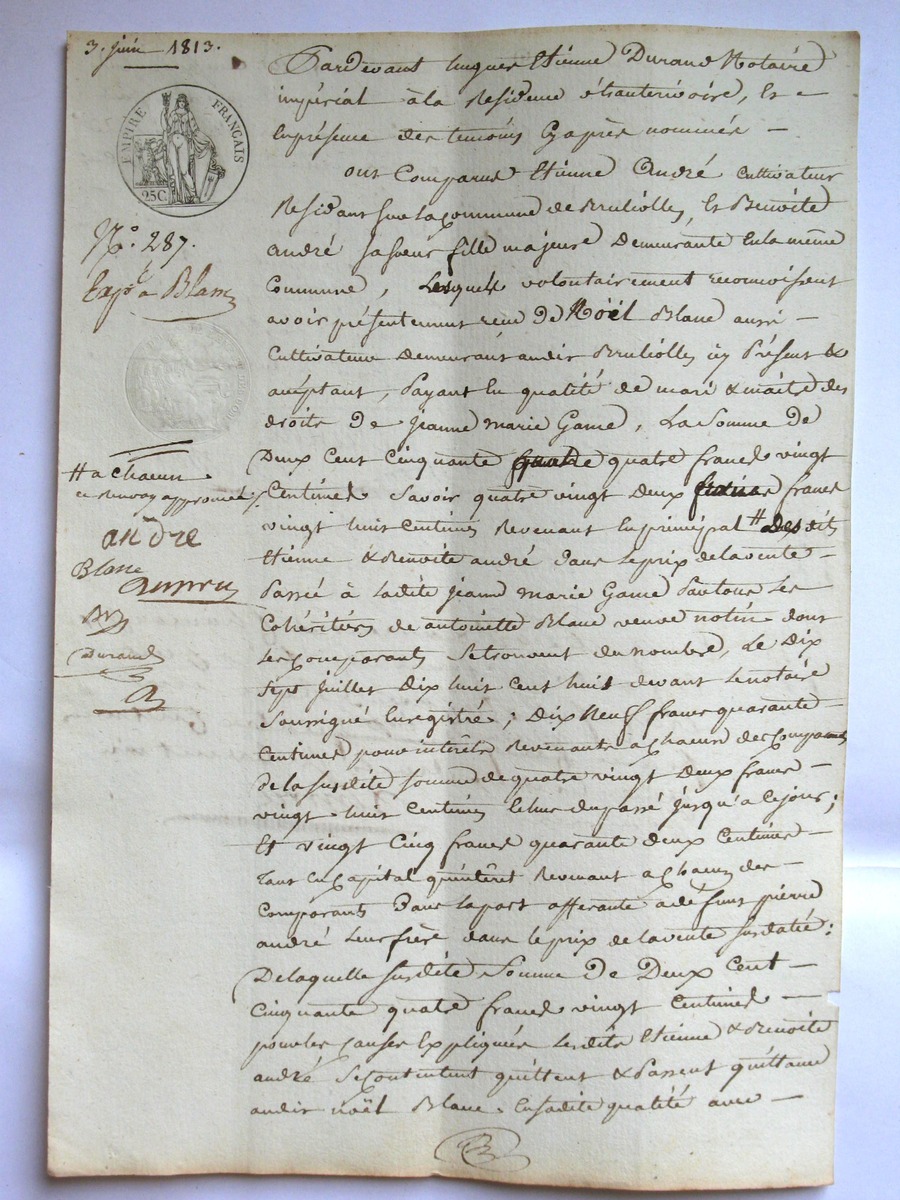 3. juin 1813.
EMPIRE FRANÇAIS
25C.
No. 287.
Expé a Blanc
# a chacun
ce renvoy approuvé
andre
Blanc
Durand
Pardevant hugues Etienne Durand Notaire
impérial à la Residence, Et
En présence des temoins Cy après nommés
ont Comparus Etienne André Cultivateur
Residant sur la Commune de Brulliolles, Et Benoite
andré sa soeur fille majeure Demeurante En la même
Commune, Lesquels volontairement reconnoissent
avoir présentement recu De Noël Blanc aussi
Cultivateur demeurant audit Brulliolles icy Présent &
acceptant, Payant En qualité de mari & maitre des
droits De jeanne marie Game, La Somme De
Deux Cent Cinquante quatre francs vingt
Centimes Savoir quatre vingt deux francs
vingt huit Centimes Revenant En principal # Desdits
Etienne & Benoite andré Dans le prix de la vente
Passée à Ladite jeanne marie Game Par tous Les
Cohéritiers de antoinette Blanc veuve dont
Les Comparants Se trouvent du nombre, Le Dix
Sept juillet Dix huit Cent huit devant le notaire
Soussigné Enregistré ; Dix Neuf francs quarante
Centimes pour intérêts Revenants a Chacun des Comparants
de la susdite somme de quatre vingt deux francs
vingt huit Centimes du passé jusqu'a Ce jour ;
Et vingt Cinq francs quarante deux Centimes
Tant En Capital qu'intérêt Revenant a Chacun des
Comparants Dans la part afferante a défunt pierre
andré Leur frère dans le prix de la vente susdatée :
De laquelle susdite Somme De Deux Cent
Cinquante quatre francs vingt Centimes
pour les Causes Expliquées Lesdits Etienne & Benoite
andré Se Contentent quittent & Passent quittance
audit noël Blanc. En sadite qualité avec